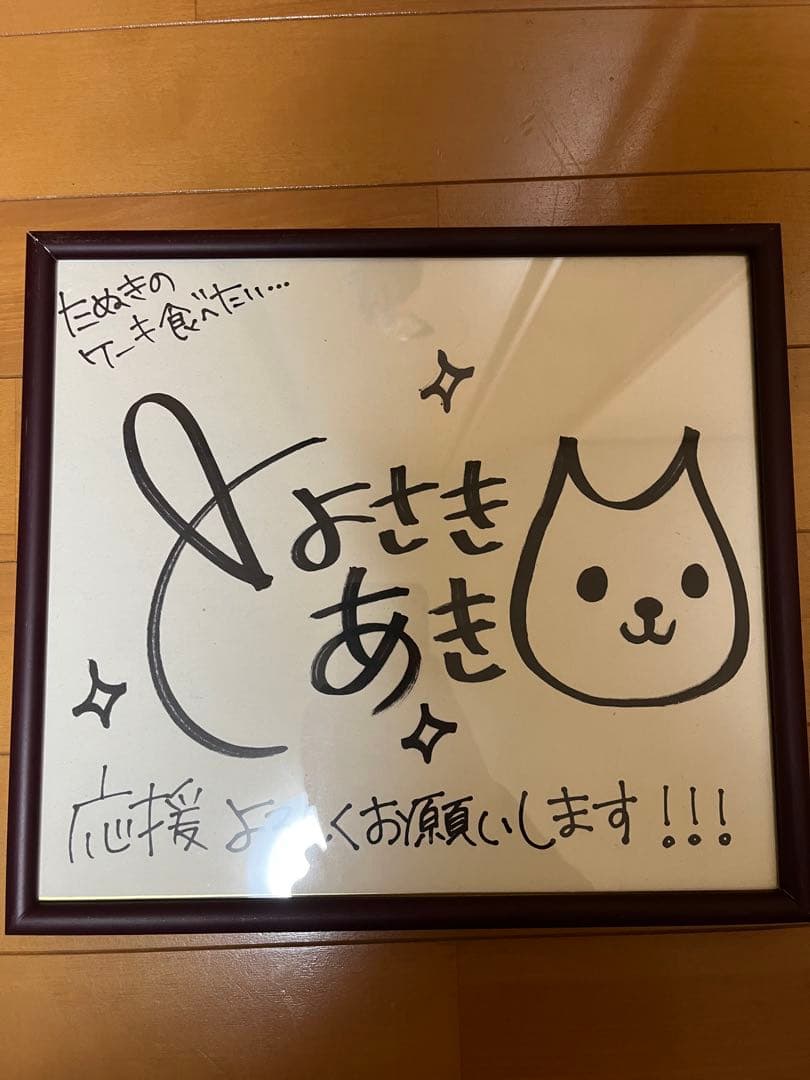 たぬきの
ケーキ食べたい…
とよさき
あき
応援よろしくお願いします!!!